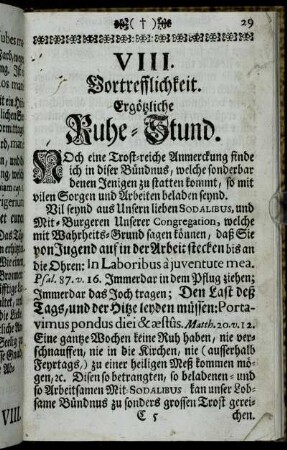 (†) 29
VIII.
Vortrefflichkeit.
Ergötzliche
Ruhe-Stund.
NOch eine Trost-reiche Anmerckung finde
ich in diser Bündnus, welche sonderbar
denen Jenigen zu statten kommt, so mit
vilen Sorgen und Arbeiten beladen seynd.
Vil seynd aus Unsern lieben SODALIBUS, und
Mit-Burgeren Unserer Congregation, welche
mit Wahrheits-Grund sagen können, daß Sie
von Jugend auf in der Arbeit stecken bis an
die Ohren: In Laboribus à juventute mea.
Psal. 87. v. 16. Immerdar in dem Pflug ziehen;
Immerdar das Joch tragen; Den Last deß
Tags, und der Hitze leyden müssen: Porta-
vimus pondus diei & æstûs. Matth. 20. v. 12.
Eine gantze Wochen keine Ruh haben, nie ver-
schnauffen, nie in die Kirchen, nie (ausserhalb
Feyrtags,) zu einer heiligen Meß kommen mö-
gen, ꝛc. Disen so betrangten, so beladenen- und
so Arbeitsamen Mit-SODALIBUS kan unser Lob-
same Bündnus zu sonders grossen Trost gerei-
C 5 chen.
VIII.